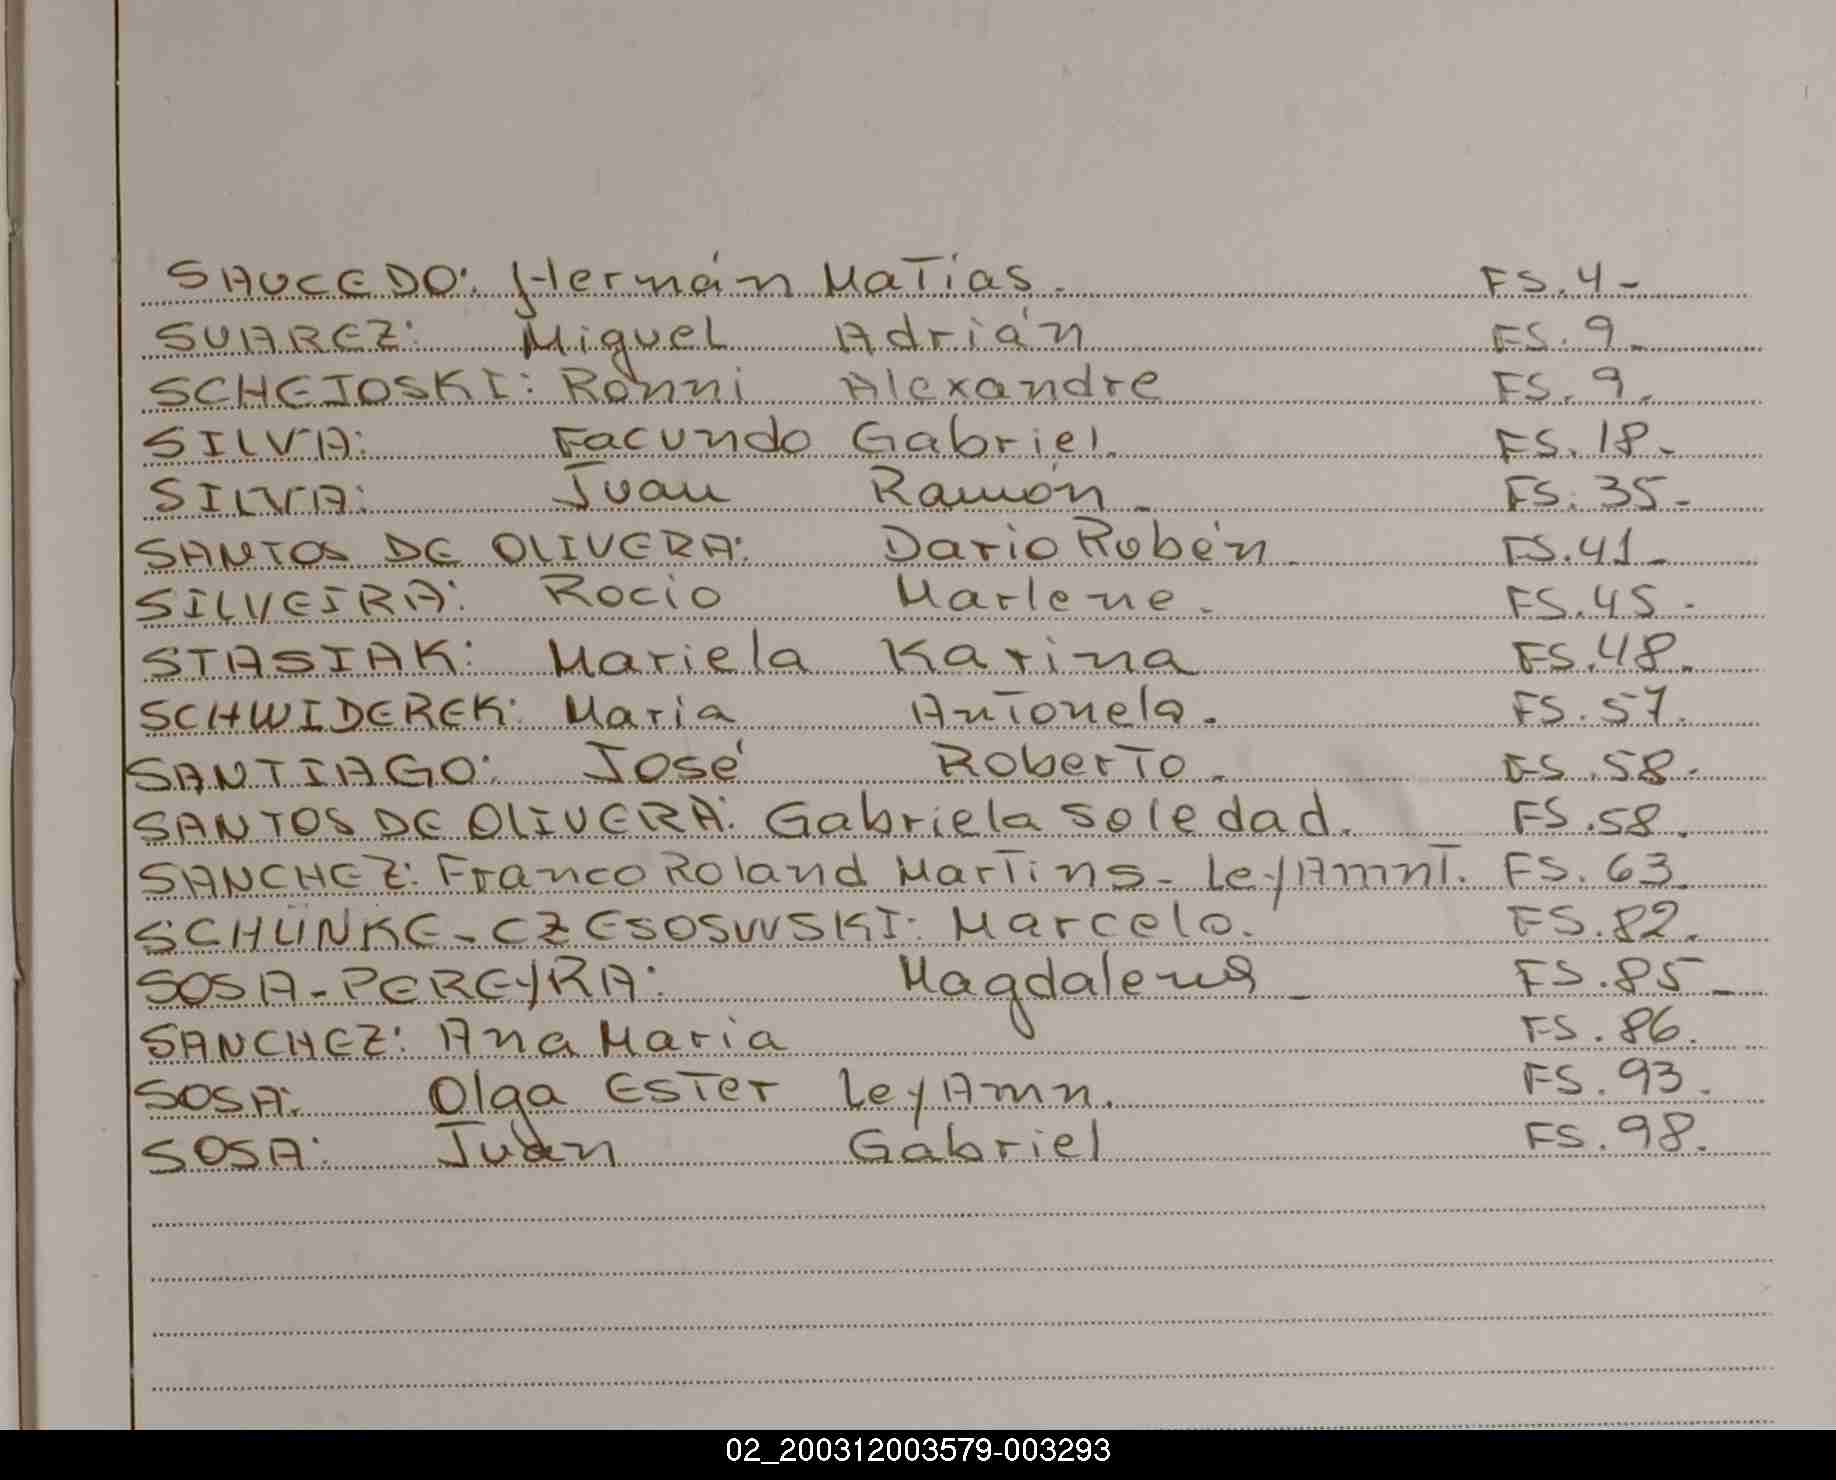 SAUCEDO: Hermán Matías. FS.4-
SUAREZ: Miguel Adrián FS.9.
SCHEJOSKI: Ronni Alexandre FS.9.
SILVA: Facundo Gabriel. FS.18.
SILVA: Juan Ramón. FS.35-
SANTOS DE OLIVERA: Dario Rubén. FS.41-
SILVEIRA: Rocio Marlene. FS.45.
STASIAK: Mariela Karina FS.48.
SCHWIDEREK: Maria Antonela. FS.57.
SANTIAGO: José Roberto. FS.58.
SANTOS DE OLIVERA: Gabriela Soledad. FS.58.
SANCHEZ: Franco Roland Martins- LeyAmnT. FS.63.
SCHÜNKE-CZESOSWSKI: Marcelo. FS.82.
SOSA-PEREYRA: Magdalena - FS.85-
SANCHEZ: Ana Maria FS.86.
SOSA: Olga Ester LeyAmn. FS.93.
SOSA: Juan Gabriel FS.98.
02_200312003579-003293